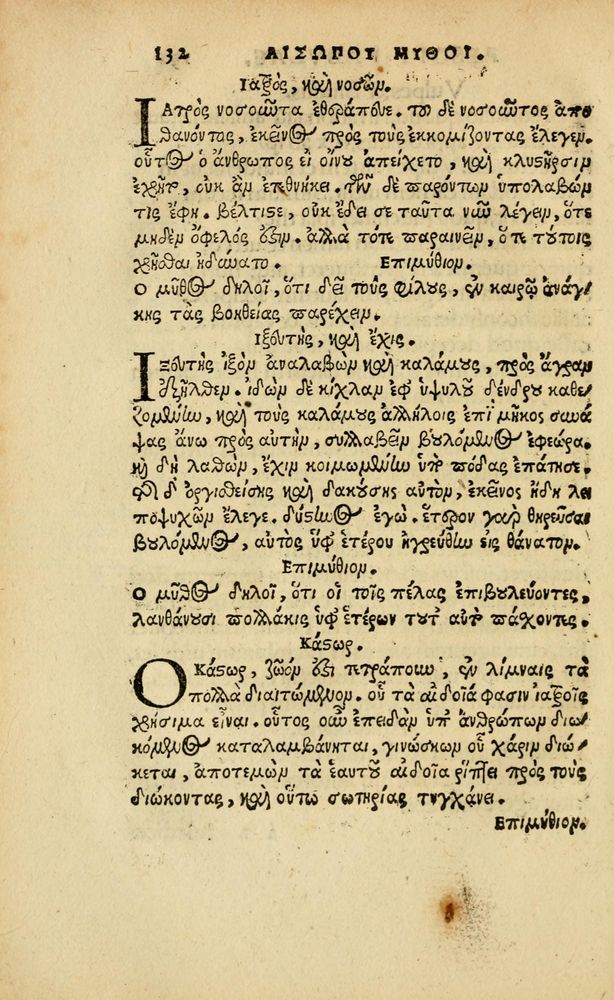 132 ΑΙΣΩΠΟΥ ΜΥΘΟΙ.
Ιατρὸς, καὶ νοσῶν.
ΙΑΤΡὸς νοσοῦντα ἐθεράπευε. τοῦ δὲ νοσοῦντος ἀπο
θανόντος, ἐκεῖνος πρὸς τοὺς ἐκκομίζοντας ἔλεγεν.
οὗτος ὁ ἄνθρωπος εἰ οἴνου ἀπείχετο, καὶ κλυστῆρσιν
ἐχρῆτο, οὐκ ἂν ἐτεθνήκει. τῶν δὲ παρόντων ὑπολαβών
τις ἔφη. βέλτιστε, οὐκ ἔδει σε ταῦτα νῦν λέγειν, ὅτε
μηδὲν ὄφελός ἐστιν. ἀλλὰ τότε παραινεῖν, ὅτε τούτοις
χρῆσθαι ἠδύνατο. Επιμύθιον.
Ο μῦθος δηλοῖ, ὅτι δεῖ τοὺς φίλους, ἐν καιρῷ ἀνάγ
κης τὰς βοηθείας παρέχειν.
Ιξευτὴς, καὶ ἔχις.
ΙΞευτὴς ἰξὸν ἀναλαβὼν καὶ καλάμους, πρὸς ἄγραν
ἐξῆλθεν. ἰδὼν δὲ κίχλαν ἐφ' ὑψηλοῦ δένδρου καθε
ζομένην, καὶ τοὺς καλάμους ἀλλήλοις ἐπὶ μῆκος συνά
ψας ἄνω πρὸς αὐτὴν, συλλαβεῖν βουλόμενος ἐφεώρα.
καὶ δὴ λαθὼν, ἔχιν κοιμωμένην ὑπὸ πόδας ἐπάτησε.
τῆς δ' ὀργισθείσης καὶ δακούσης αὐτὸν, ἐκεῖνος ἤδη λει
ποψυχῶν ἔλεγε. δύστηνος ἐγὼ. ἕτερον γὰρ θηρεῦσαι
βουλόμενος, αὐτὸς ὑφ' ἑτέρου ἠγρεύθην εἰς θάνατον.
Επιμύθιον.
Ο μῦθος δηλοῖ, ὅτι οἱ τοῖς πέλας ἐπιβουλεύοντες,
λανθάνουσι πολλάκις ὑφ' ἑτέρων τοῦτ' αὐτὸ πάσχοντες.
Κάστωρ.
Ο Κάστωρ, ζῶόν ἐστι τετράπουν, ἐν λίμναις τὰ
πολλὰ διαιτώμενον. οὗ τὰ αἰδοῖά φασιν ἰατροῖς
χρήσιμα εἶναι. οὗτος οὖν ἐπειδὰν ὑπ' ἀνθρώπων διω
κόμενος καταλαμβάνηται, γινώσκων οὗ χάριν διώ
κεται, ἀποτεμὼν τὰ ἑαυτοῦ αἰδοῖα ῥίπτει πρὸς τοὺς
διώκοντας, καὶ οὕτω σωτηρίας τυγχάνει.
Επιμύθιον.